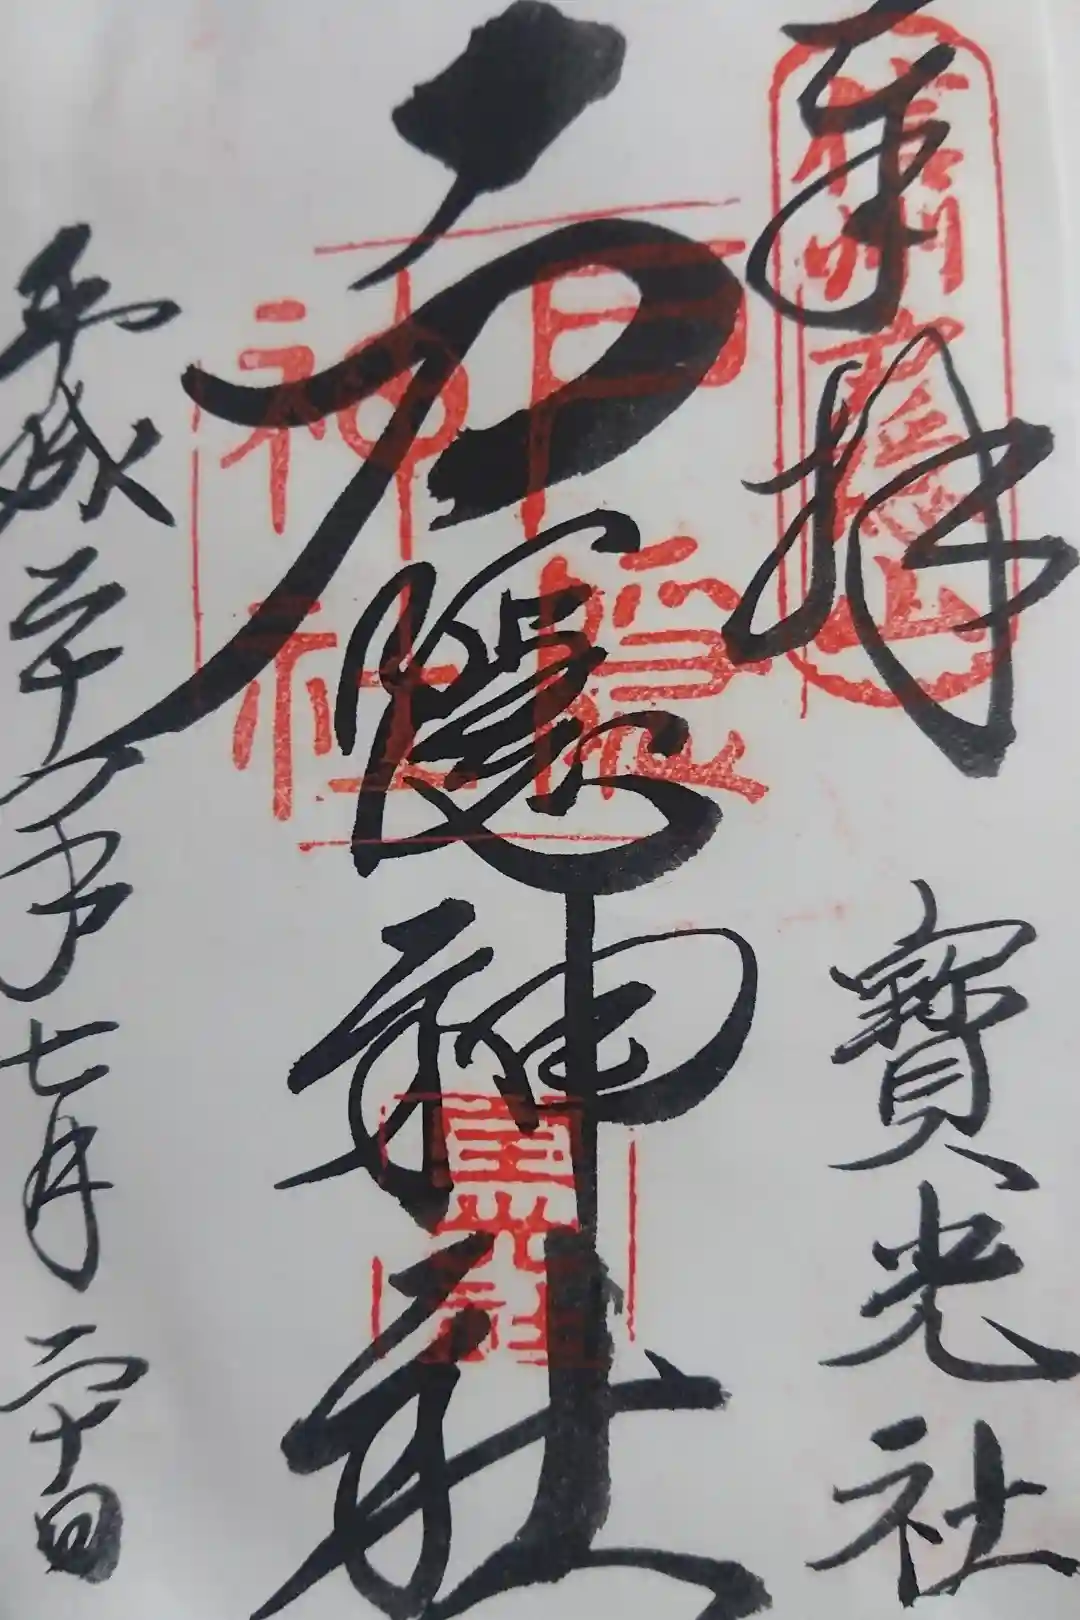 奉拝
信州戸隠山
寶光社
戸隠神社
戸隠神社
寶光社
平成二十年七月二十日